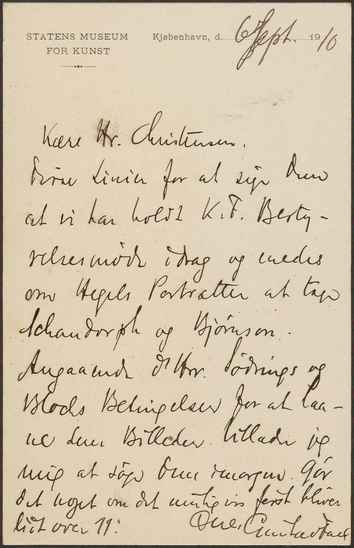 STATENS MUSEUM
FOR KUNST
Kjøbenhavn, d. 6 Sept. 1910
Kære Hr. Christensen.
Disse Linier for at sige Dem
at vi har holdt K. F. Besty-
relsesmøde idag og enedes
om Hegels Portrætter at tage
Schandorph og Bjørnson.
Angaaende d'Hrr. Sødrings og
Blochs Betingelser for at laa-
ne dem Billeder tillader jeg
mig at søge Dem imorgen. Gør
det noget om det muligvis først bliver
lidt over 11?
Deres